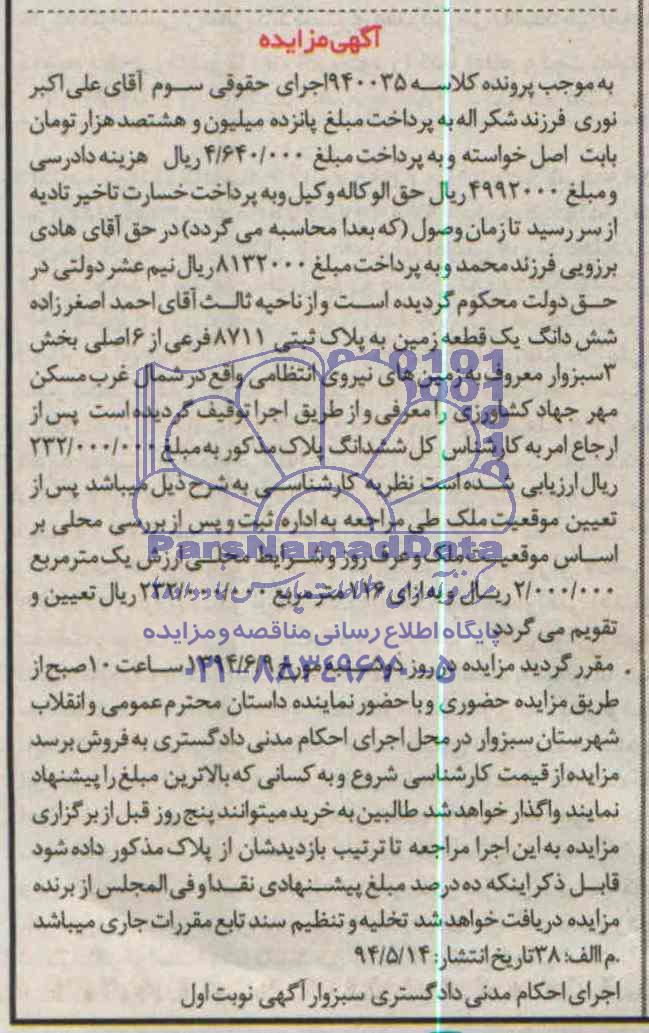 آگهی مزایده
به موجب پرونده کلاسه ۹۴۰۰۳۵اجرای حقوقی سوم آقای علی اکبر
نوری فرزند شکر اله به پرداخت مبلغ پانزده میلیون و هشتصد هزار تومان
بابت اصل خواسته و به پرداخت مبلغ ۴/۶۴۰/۰۰۰ ریال هزینه دادرسی
و مبلغ ۴۹۹۲۰۰۰ ریال حق الوکاله وکیل وبه پرداخت خسارت تاخیر تادیه
از سر رسید تا زمان وصول (که بعدا محاسبه می گردد) در حق آقای هادی
برزویی فرزند محمد و به پرداخت مبلغ ۸۱۳۲۰۰۰ ریال نیم عشر دولتی در
حق دولت محکوم گردیده است و از ناحیه ثالث آقای احمد اصغر زاده
شش دانگ یک قطعه زمین به پلاک ثبتی ۸۷۱۱فرعی از ۶اصلی بخش
۳سبزوار معروف به زمین های نیروی انتظامی واقع در شمال غرب مسکن
مهر جهاد کشاورزی را معرفی و از طریق اجرا توقیف گردیده است پس از
ارجاع امر به کارشناس کل ششدانگ پلاک مذکور به مبلغ ۲۳۲/۰۰۰/۰۰۰
ریال ارزیابی شده است نظریه کارشناسی به شرح ذیل میباشد پس از
تعیین موقعیت ملک طی مراجعه به اداره ثبت و پس از بررسی محلی بر
ParsNamadData
اساس موقعیت ملک و عرف روز و شرایط محلی ارزش یک متر مربع
۲/۰۰۰/۰۰۰ ریال و به ازای ۱۱۶ متر مربع ۲۳۲/۰۰۰/۰۰۰ ریال تعیین و
تقویم می گردد
پایگاه اطلاع رسانی مناقصه و مزایده
مقرر گردید مزایده در روز دوشنبه مورخ ۱۳۹۴/۶/۹ ساعت ۱۰صبح از
۰۲۱-۸۸۳۴۹۶۷۰-۵
طریق مزایده حضوری و با حضور نماینده داستان محترم عمومی و انقلاب
شهرستان سبزوار در محل اجرای احکام مدنی دادگستری به فروش برسد
مزایده از قیمت کارشناسی شروع و به کسانی که بالاترین مبلغ را پیشنهاد
نمایند واگذار خواهد شد طالبین به خرید میتوانند پنج روز قبل از برگزاری
مزایده به این اجرا مراجعه تا ترتیب بازدیدشان از پلاک مذکور داده شود
قابل ذکر اینکه ده درصد مبلغ پیشنهادی نقدا و فی المجلس از برنده
مزایده دریافت خواهد شد تخلیه و تنظیم سند تابع مقررات جاری میباشد
.م االف: ۳۸تاریخ انتشار: ۹۴/۵/۱۴
اجرای احکام مدنی دادگستری سبزوار آگهی نوبت اول